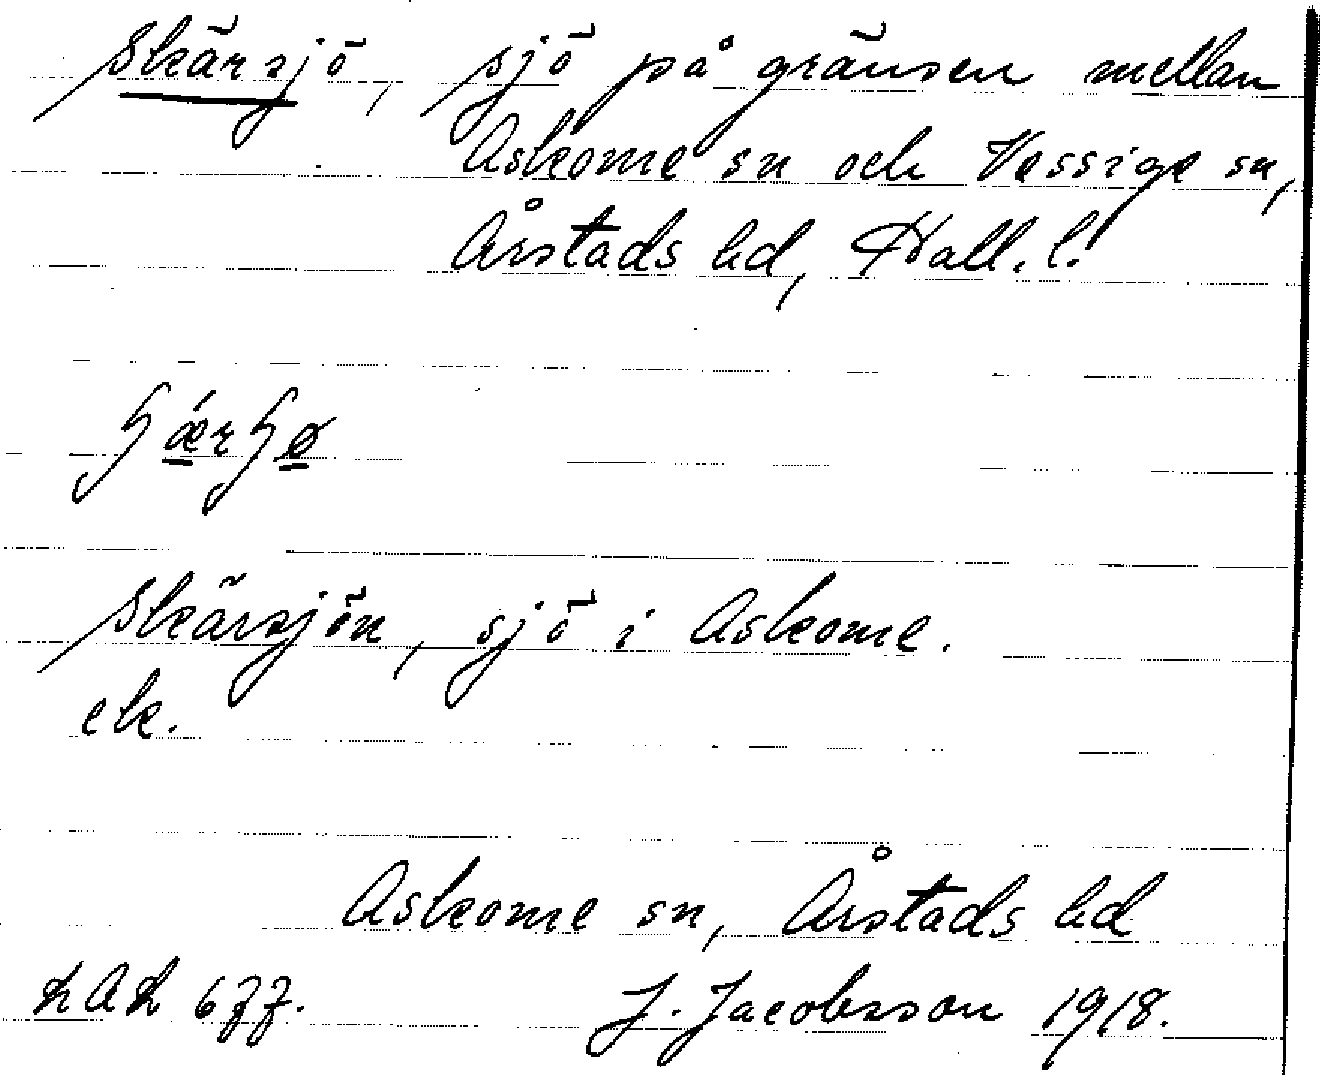 Skärsjö, sjö på gränsen mellan
Askome sn och Vessige sn,
Årstads hd, Hall. l.
Skärsjön, sjö i Askome.
ek.
Askome sn, Årstads hd
J. Jacobsson 1918.